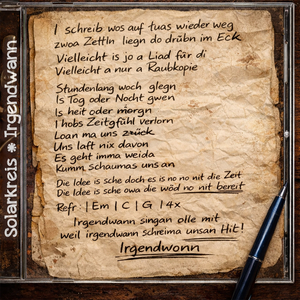 Solarkreis * Irgendwann
I schreib wos auf tuas wieder weg
zwoa Zettln liegn do drübn im Eck
Vielleicht is jo a Liad für di
Vielleicht a nur a Raubkopie
Stundenlang woch glegn
Is Tog oder Nocht gwen
Is heit oder morgn
I hobs Zeitgfühl verlorn
Loan ma uns zrück
Uns laft nix davon
Es geht imma weida
Kumm schaumas uns an
Die Idee is sche doch es is no nit die Zeit
Die Idee is sche owa die wöd no nit bereit
Refr: | Em | C | G | 4x
Irgendwann singan olle mit
weil irgendwann schreima unsan Hit!
Irgendwonn